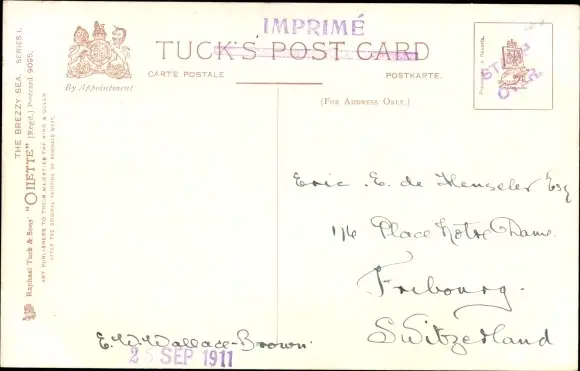 IMPRIMÉ
TUCK'S POST CARD
CARTE POSTALE.
POSTKARTE.
By Appointment
(FOR ADDRESS ONLY.)
STAMP
OVER.
THE BREZZY SEA. SERIES I.
Raphael Tuck & Sons' "OILETTE" [Regd.] Postcard 9095.
ART PUBLISHERS TO THEIR MAJESTIES THE KING & QUEEN
AFTER THE ORIGINAL PAINTING BY
Eric. E. de Henseler Esq
116 Place Notre Dame.
Fribourg.
Switzerland
E. W. Wallace-Brown.
25 SEP 1911